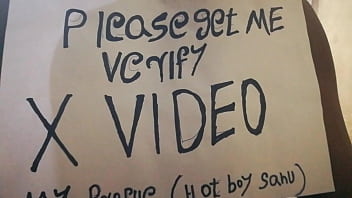 Please get ME
Verify
X VIDEO
MY (Hot boy Sanu)